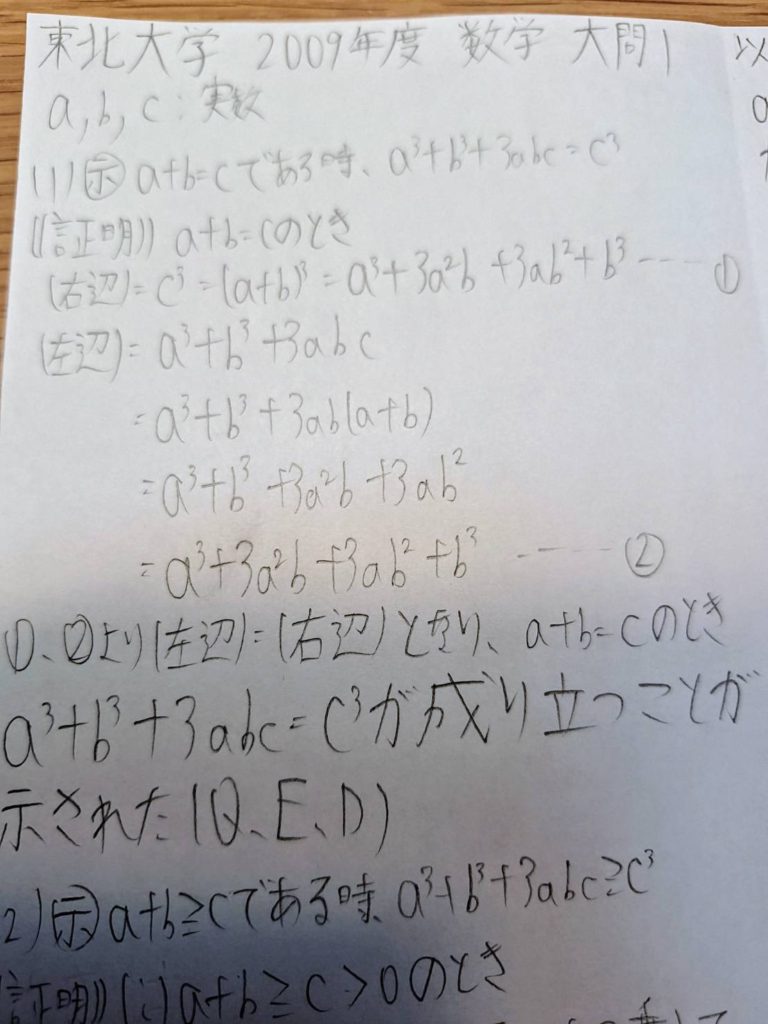 東北大学 2009年度 数学 大問1
a,b,c:実数
(1)㋛a+b=cである時、a³+b³+3abc=c³
((証明)) a+b=cのとき
(右辺)=c³=(a+b)³=a³+3a²b+3ab²+b³ ---- ①
(左辺)=a³+b³+3abc
=a³+b³+3ab(a+b)
=a³+b³+3a²b+3ab²
=a³+3a²b+3ab²+b³ ------ ②
①、②より(左辺)=(右辺)となり、a+b=cのとき
a³+b³+3abc=c³が成り立つことが
示された(Q、E、D)
2)示a+b≧cである時、a³+b³+3abc≧c³
証明))(i)a+b≧c>0のとき
以
a